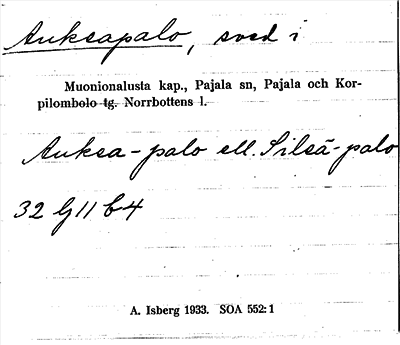 Auksapalo, sved i
Muonionalusta kap., Pajala sn, Pajala och Kor-
pilombolo tg. Norrbottens l.
Auksa-palo ell. Silsä-palo
32 G 11 b 4
A. Isberg 1933. SOA 552:1